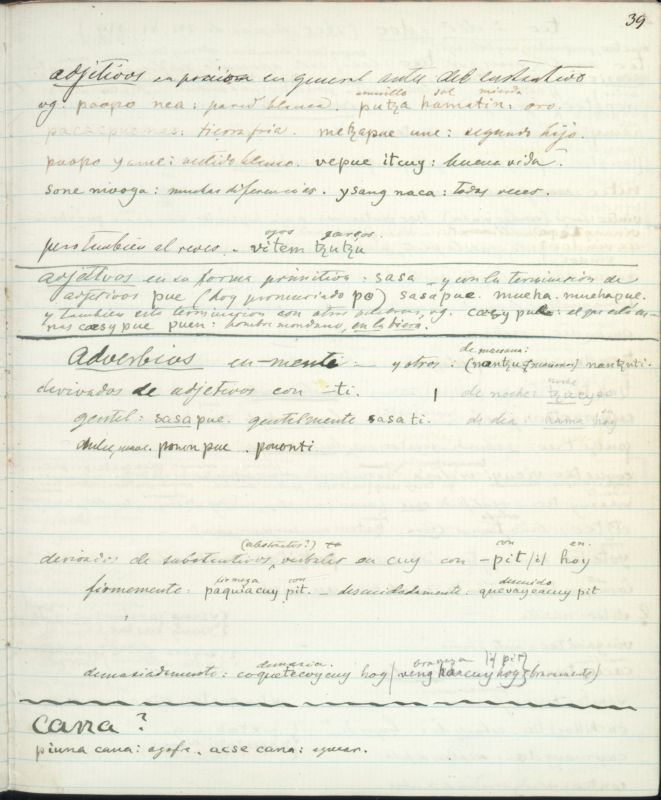 39
adjetivos en posicion en general antes del sustantivo
amarillo sol mierda
vg: poopo nea: pared blanca. putza hamatin: oro.
tierra fria. metzapue une: segundo hijo.
poopo yame: vestido blanco. vepue itcuy: buena vida.
sone nivoya: muchas diferencias. ysang naca: todas veces.
ojos garços.
pero tambien al reves. vitem tzutzu
adjetivos en su forma primitiva: sasa y con la terminacion de
adjetivos pue (hoy pronunciado po) sasapue. mucha. muchapue.
y tambien esta terminacion con otras palabras, vg. el que está
nas cœsy pue puen: hombre mundano, en la tierra.
de mañana:
Adverbios en -mente - y otros: (nantzu) nantzuti.
noche
derivados de adjetivos con -ti. de noche: tzacyo
gentil: sasapue. gentilmente sasati. de dia: hama hoy
dulce, suave. ponon pue. pononti
(abstractos?) con en.
derivados de substantivos, verbales en cuy con -pit /i/ hoy
firmeza con descuido
firmemente: paquiacuy pit. descuidadamente: quevayeacuy pit
demasia. braveza /i/ pit)
demasiadamente: coquetecoycuy hoy (bravamente)
cana?
piuna cana: azofre. acse cana: azucar.